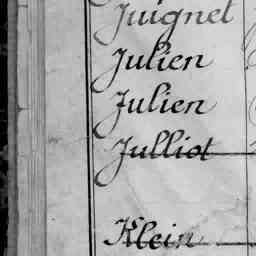 Juignet
Julien
Julien
Julliot
Klein